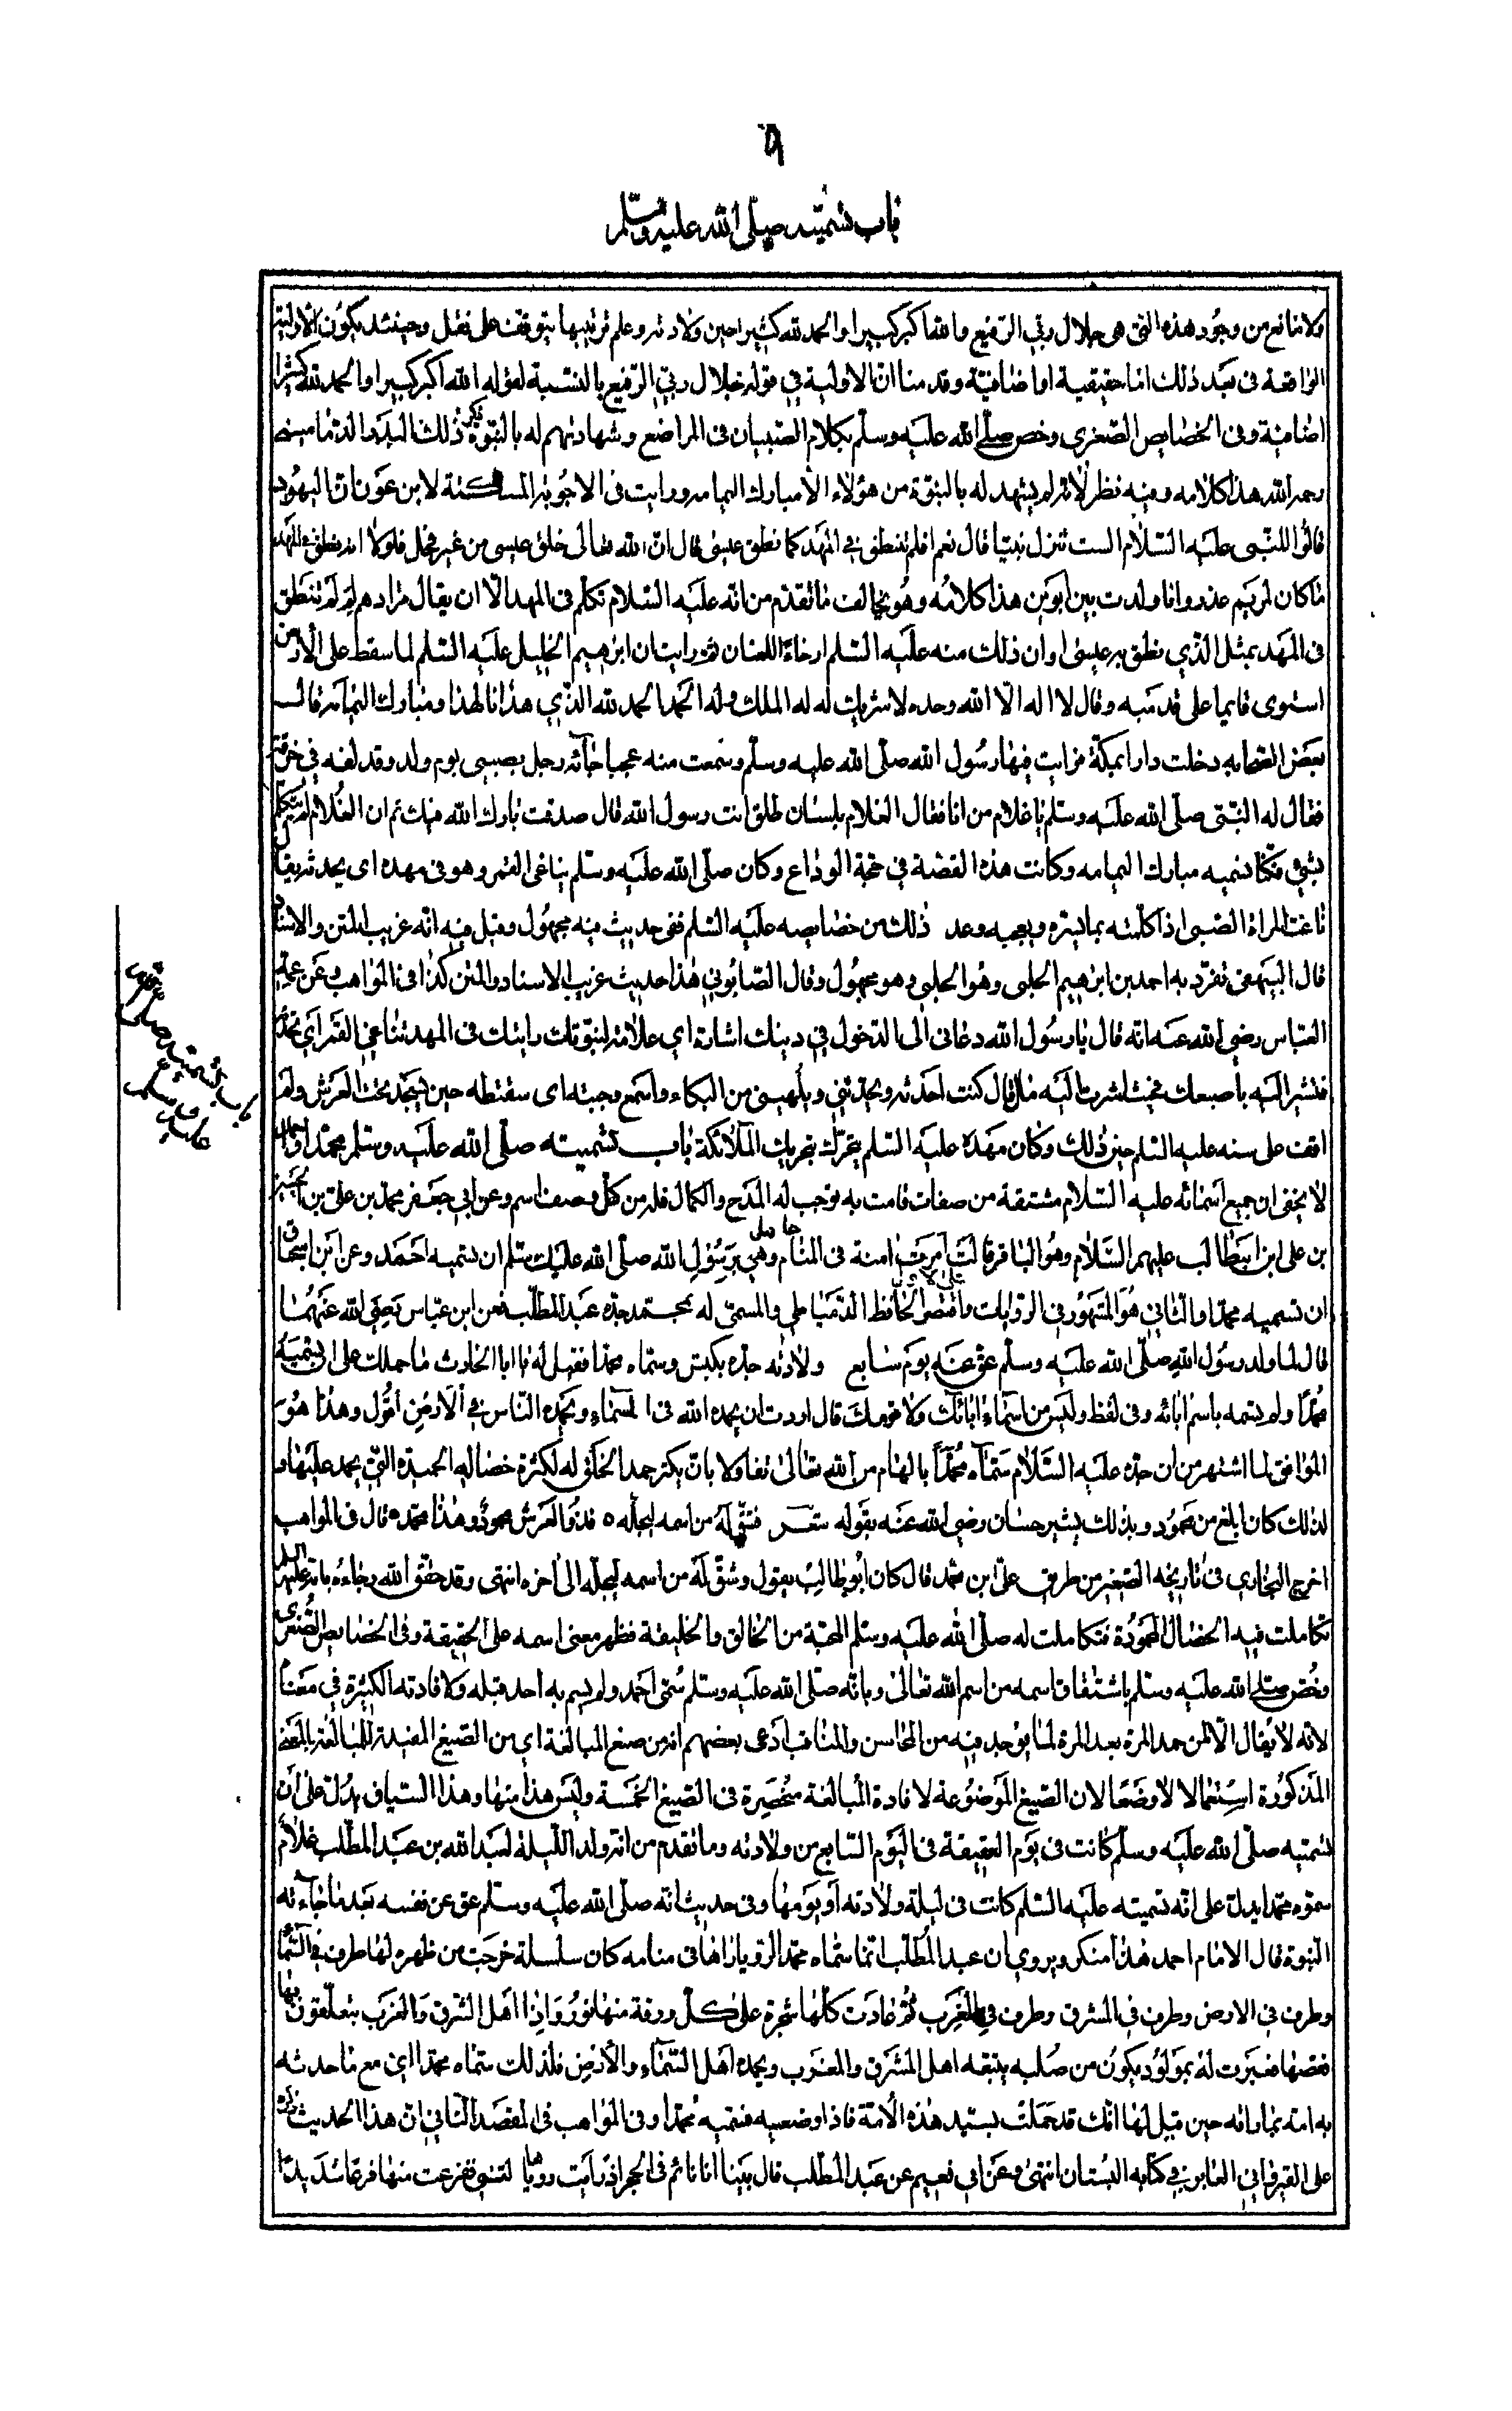 ٥٩
باب تسميته صلّى الله عليه وسلّم
ولا مانع من وجود هذه التى هى جلال ربي الرفيع والله اكبر كبيرا والحمد لله كثيرا حين ولادته وعلم ترتيبها يتوقف على نقل وحينئذ يكون الاولية
الواقعة فى بعد ذلك اما حقيقية او اضافية وقدمنا ان الاولية في قوله جلال ربي الرفيع بالنسبة لقوله الله اكبر كبيرا والحمد لله كثيرا
اضافية وفى الخصايص الصغرى وخص صلّى الله عليه وسلّم بكلام الصبيان فى المراضع وشهادتهم له بالنبوة ذكر ذلك البدر الدمامينى
رحمه الله هذا كلامه وفيه نظر لانه لم يشهد له بالنبوة من هؤلاء الا مبارك اليمامه ورايت فى الاجوبة المسكتة لابن عون ان اليهود
قالوا للنبى عليه السّلام الست تنزل نبيا قال نعم قال فلم تنطق في المهد كما نطق عيسى قال ان الله تعالى خلق عيسى من غير فحل فلولا انه نطق فى المهد
ما كان لمريم عذر وانا ولدت بين ابوين هذا كلامه وهو يخالف ما تقدم من انه عليه السّلام تكلم فى المهد الّا ان يقال مرادهم لم لم تنطق
فى المهد بمثل الذي نطق به عيسى او ان ذلك منه عليه السّلم ارخاء للعنان ثم رايت ان ابرهيم الخليل عليه السّلم لما سقط على الارض
استوى قايما على قدميه وقال لا اله الا الله وحده لا شريك له له الملك وله الحمد الحمد لله الذي هدانا لهذا ومبارك اليمامه قال
بعض الصحابه دخلت دارا بمكة فرايت فيها رسول الله صلّى الله عليه وسلّم وسمعت منه عجبا جاءه رجل بصبى يوم ولد وقد لفه في خرقة
فقال له النّبى صلّى الله عليه وسلّم يا غلام من انا فقال الغلام بلسان طلق انت رسول الله قال صدقت بارك الله فيك ثم ان الغلام لم يتكلم
بشئ فكنا نسميه مبارك اليمامه وكانت هذه القصة في حجة الوداع وكان صلّى الله عليه وسلّم يناغى القمر وهو فى مهده اى يحدثه يقال
ناغت المراة الصبى اذا كلمته بما يسره ويعجبه وعد ذلك من خصايصه عليه السّلم ففى حديث فيه مجهول وقيل فيه انّه غريب المتن والاسناد
قال البيهقى تفرّد به احمد بن ابرهيم الحلبى وهو الحلبى وهو مجهول وقال الصّابوني هذا حديث غريب الاسناد والمتن كذا فى المواهب وعن عمه
العباس رضي الله عنه انّه قال يا رسول الله دعانى الى الدخول في دينك اشارة اي علامة لنبوتك رايتك فى المهد تناغي القمر اي تحدثه
فتشير اليه باصبعك فحيث اشرت اليه مال قال كنت احدثه ويحدثني ويلهيني من البكاء واسمع وجبته اى سقطته حين يسجد تحت العرش ولم
اقف على سنه عليه السّلم حين ذلك وكان مهده عليه السّلم يتحرّك بتحريك الملائكة باب تسميته صلّى الله عليه وسلم محمّدا واحمدا
لا يخفى ان جميع اسمائه عليه السّلام مشتقة من صفات قامت به توجب له المدح والكمال فله من كلّ وصف اسم وعن ابي جعفر محمد بن على بن الحسين
بن على ابن ابيطالب عليهم السّلام وهو الباقر قال لت امرت امنة فى المنام وهي حامل برسول الله صلّى الله عليك سلم ان تسميه احمد وعن ابن اسحاق
ان تسميه محمّدا والثاني هو المشهور في الروايات واقتصر على الاول الحافظ الدمياطي والمسمّى له بمحمد جدّه عبد المطلب فعن ابن عباس رضى الله عنهما
قال لما ولد رسول الله صلّى الله عليه وسلّم عق عنه يوم سابع ولادته جدّه بكبش وسماه محمّدا فقيل له يا ابا الحارث ما حملك على ان تسميه
محمّدا ولم تسمه باسم ابائه وفى لفظ وليس من اسماء ابائك ولا قومك قال اردت ان يحمده الله فى السّماء ويحمده النّاس في الارض اقول وهذا هو
الموافق لما اشتهر من ان جدّه عليه السّلام سمّاه محمّدا بالهام من الله تعالى تفاؤلا بان يكثر حمد الخلق له لكثرة خصاله الحميدة التي يحمد عليها و
لذلك كان ابلغ من محمود وبذلك يشير حسان رضي الله عنه بقوله شعر فشقّ له من اسمه ليجلّه ٥ فذو العرش محمود وهذا محمّد ٥ قال فى المواهب
اخرج البخاري فى تاريخه الصّغير من طريق على ابن محمد قال كان ابو طالب يقول وشقّ له من اسمه ليجلّه الى اخره انتهى وقد حقّق الله رجاءه بانه عليه السلم
تكاملت فيه الخصال المحمودة فتكاملت له صلّى الله عليه وسلم المحبّة من الخالق والخليقة فظهر معنى اسمه على الحقيقة وفى الخصايص الصغرى
وخص صلّى الله عليه وسلم باشتقاق اسمه من اسم الله تعالى وبانّه صلّى الله عليه وسلم سمّى احمد ولم يسم به احد قبله ولافادته الكثيرة في معناه
لانّه لا يقال الّا لمن حمد المرة بعد المرة لما يوجد فيه من المحاسن والمناقب ادّعى بعضهم انه من صيغ المبالغة اي من الصيغ المفيدة للمبالغة بالمعنى
المذكورة استعمالا لا وضعا لان الصّيغ الموضوعة لافادة المبالغة منحصرة فى الصيغ الخمسة وليس هذا منها وهذا السّياق يدلّ على ان
تسميته صلّى الله عليه وسلّم كانت فى يوم العقيقة فى اليوم السّابع من ولادته وما تقدم من انه ولد الليلة لعبد الله بن عبد المطلب غلام
سموه محمّدا يدل على انّه تسميته عليه السّلم كانت فى ليلة ولادته او يومها وفى حديث انه صلّى الله عليه وسلم عق عن نفسه بعد ما جاءته
النّبوة قال الامام احمد هذا منكر ويروي ان عبد المطّلب انما سمّاه محمّد الرؤيا راها فى منامه كان سلسلة خرجت من ظهره لها طرف في السّماء
وطرف في الارض وطرف في المشرق وطرف في المغرب ثم عادت كانّها شجرة على كلّ ورقة منها نور واذا اهل الشرق والغرب يتعلّقون بها
فقصّها فعبرت له بمولود يكون من صلبه يتبعه اهل المشرق والمغرب ويحمده اهل السّماء والارض فلذلك سمّاه محمّدا اي مع ما حدثته
به امه بما راته حين قيل لها انّك قد حملت بسيد هذه الامّة فاذا وضعتيه فسميه محمّدا وفى المواهب فى المقصد الثاني ان هذا الحديث ذكره
على القيروانى العابر في كتابه البستان انتهى وعن ابي نعيم عن عبد المطلب قال بينا انا نائم فى الحجر اذ رايت رويا هالتنى ففزعت منها فزعا شديدا
باب تسميته صلى الله
عليه وسلم